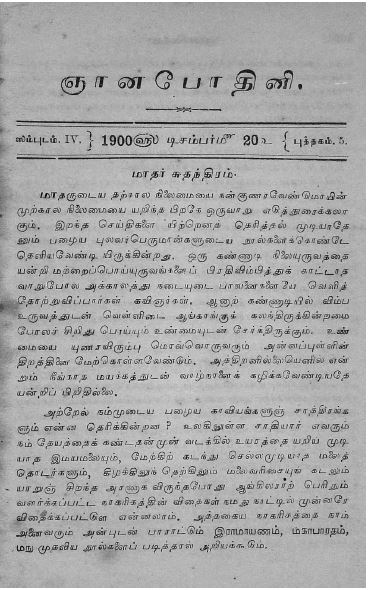 ஞானபோதினி.
ஸம்புடம். IV. } 1900௵ டிசம்பர்௴ 20உ { புத்தகம். 5.
மாதர் சுதந்திரம்.
மாதருடைய தற்கால நிலைமையை நன்குணரவேண்டுமாயின்
முற்கால நிலைமையை யறிந்த பிறகே ஒருவாறு எடுத்துரைக்கலா
கும். இறந்த செய்திகளை யிற்றெனத் தெரிதல் முடியாதே
னும் பழைய புலவர்பெருமான்களுடைய நூல்களைக்கொண்டே
தெளியவேண்டி யிருக்கின்றது. ஒரு கண்ணாடி நிலையுருவத்தை
யன்றி மற்றைப்பொய்யுருவங்களைப் பிரதிவிம்பித்துக் காட்டாத
வாறுபோல அக்காலத்து நடையுடை பாவனைகளையே வெளித்
தோற்றுவிப்பார்கள் கவிஞர்கள். ஆனாற் கண்ணாடியில் விம்ப
உருவத்துடன் வெள்ளிடை ஆங்காங்குக் கலந்திருக்கின்றமை
போலச் சிறிது பொய்யும் உண்மையுடன் சேர்ந்திருக்கும். உண்
மையை யுணரவிரும்பு மொவ்வொருவரும் அன்னப்புள்ளின்
திறத்தினை மேற்கொள்ளவேண்டும். அத்திறனில்லையெனில் என்
றும் நீங்காத மயக்கத்துடன் வாழ்நாளைக் கழிக்கவேண்டியதே
யன்றிப் பிறிதில்லை.
அற்றேல் நம்முடைய பழைய காவியங்களுஞ் சாத்திரங்க
ளும் என்ன தெரிக்கின்றன? உலகிலுள்ள சாதியார் எவரும்
நம் தேயத்தைக் கண்டதன்முன் வடக்கில் உயரத்தை யறிய முடி
யாத இமயமலையும், மேற்கிற் கடந்து செல்லமுடியாத மலைத்
தொடர்களும், கிழக்கிலுந் தெற்கிலும் மலைவரிசையுங் கடலும்
யாறுஞ் சிறந்த அரணாக விருந்தபோது ஆங்கிலராற் பெரிதும்
வளர்க்கப்பட்ட நாகரிகத்தின் விதைகள் நமது நாட்டில் முன்னரே
விதைக்கப்பட்டுள என்னலாம். அத்தகைய நாகரிகத்தை நாம்
அனைவரும் அன்புடன் பாராட்டும் இராமாயணம், மகாபாரதம்,
மநு முதலிய நூல்களைப் படித்தால் அறியக்கூடும்.